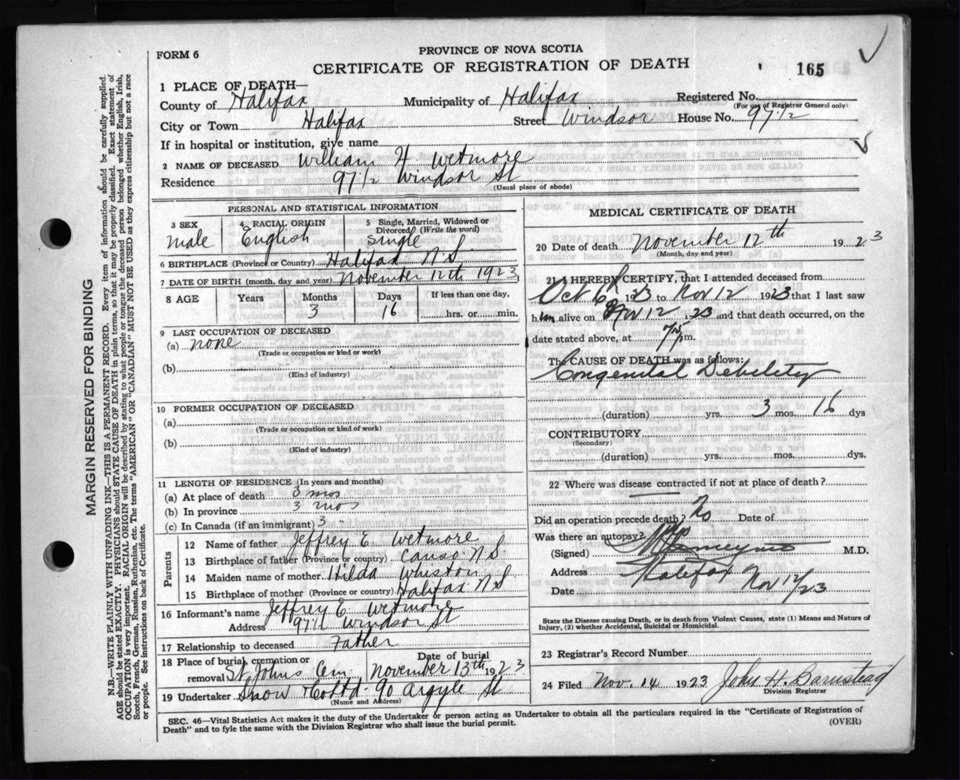 FORM 6
PROVINCE OF NOVA SCOTIA
CERTIFICATE OF REGISTRATION OF DEATH
165
1 PLACE OF DEATH—
County of Halifax Municipality of Halifax Registered No.
(For use of Registrar General only)
City or Town Halifax Street Windsor House No. 97½
If in hospital or institution, give name
2 NAME OF DECEASED William H Wetmore
Residence 97½ Windsor St
(Usual place of abode)
PERSONAL AND STATISTICAL INFORMATION
3 SEX
male
4 RACIAL ORIGIN
English
5 Single, Married, Widowed or Divorced (Write the word)
Single
6 BIRTHPLACE (Province or Country) Halifax N.S
7 DATE OF BIRTH (month, day and year) November 12th 1923
8 AGE Years Months Days If less than one day,
3 16 hrs. or min.
9 LAST OCCUPATION OF DECEASED
(a) none
(Trade or occupation or kind or work)
(b)
(Kind of industry)
10 FORMER OCCUPATION OF DECEASED
(a)
(Trade or occupation or kind of work)
(b)
(Kind of industry)
11 LENGTH OF RESIDENCE (In years and months)
(a) At place of death 3 mos
(b) In province 3 mos
(c) In Canada (if an immigrant) 3
Parents
12 Name of father Jeffrey E. Wetmore
13 Birthplace of father (Province or country) Canso N.S.
14 Maiden name of mother Hilda Whiston
15 Birthplace of mother (Province or country) Halifax N.S
16 Informant's name Jeffrey E Wetmore
Address 97½ Windsor St
17 Relationship to deceased Father
18 Place of burial, cremation or removal St Johns Cem Date of burial November 13th 1923
19 Undertaker Snow & Co Ltd 90 Argyle St
(Name and Address)
MEDICAL CERTIFICATE OF DEATH
20 Date of death November 12th 1923
(Month, day and year)
21 I HEREBY CERTIFY, that I attended deceased from
Oct 6 1923 to Nov 12 1923 that I last saw
him alive on Nov 12 23 and that death occurred, on
date stated above, at m.
The CAUSE OF DEATH was as follows:
Congenital Debility
(duration) yrs. 3 mos. 16 dys
CONTRIBUTORY
(Secondary)
(duration) yrs. mos. dys.
22 Where was disease contracted if not at place of death?
Did an operation precede death? No Date of
Was there an autopsy?
(Signed) M.D.
Address Halifax
Date Nov 12/23
State the Disease causing Death, or in death from Violent Causes, state (1) Means and Nature of Injury, (2) whether Accidental, Suicidal or Homicidal.
23 Registrar's Record Number
24 Filed Nov. 14 1923 John H. Barnstead
Division Registrar
SEC. 46—Vital Statistics Act makes it the duty of the Undertaker or person acting as Undertaker to obtain all the particulars required in the "Certificate of Registration of
Death" and to fyle the same with the Division Registrar who shall issue the burial permit. (OVER)
MARGIN RESERVED FOR BINDING
N.B.—WRITE PLAINLY WITH UNFADING INK—THIS IS A PERMANENT RECORD. Every item of information should be carefully supplied.
AGE should be stated EXACTLY. PHYSICIANS should STATE CAUSE OF DEATH in plain terms, so that it may be properly classified. Exact statement of
OCCUPATION is very important. RACIAL ORIGIN will be described by stating to what people or tongue the deceased person belonged whether English, Irish,
Scotch, French, German, Russian, Ruthenian, etc. The terms "AMERICAN" or "CANADIAN" MUST NOT BE USED as they express citizenship but not a race
or people. See instructions on back of Certificate.